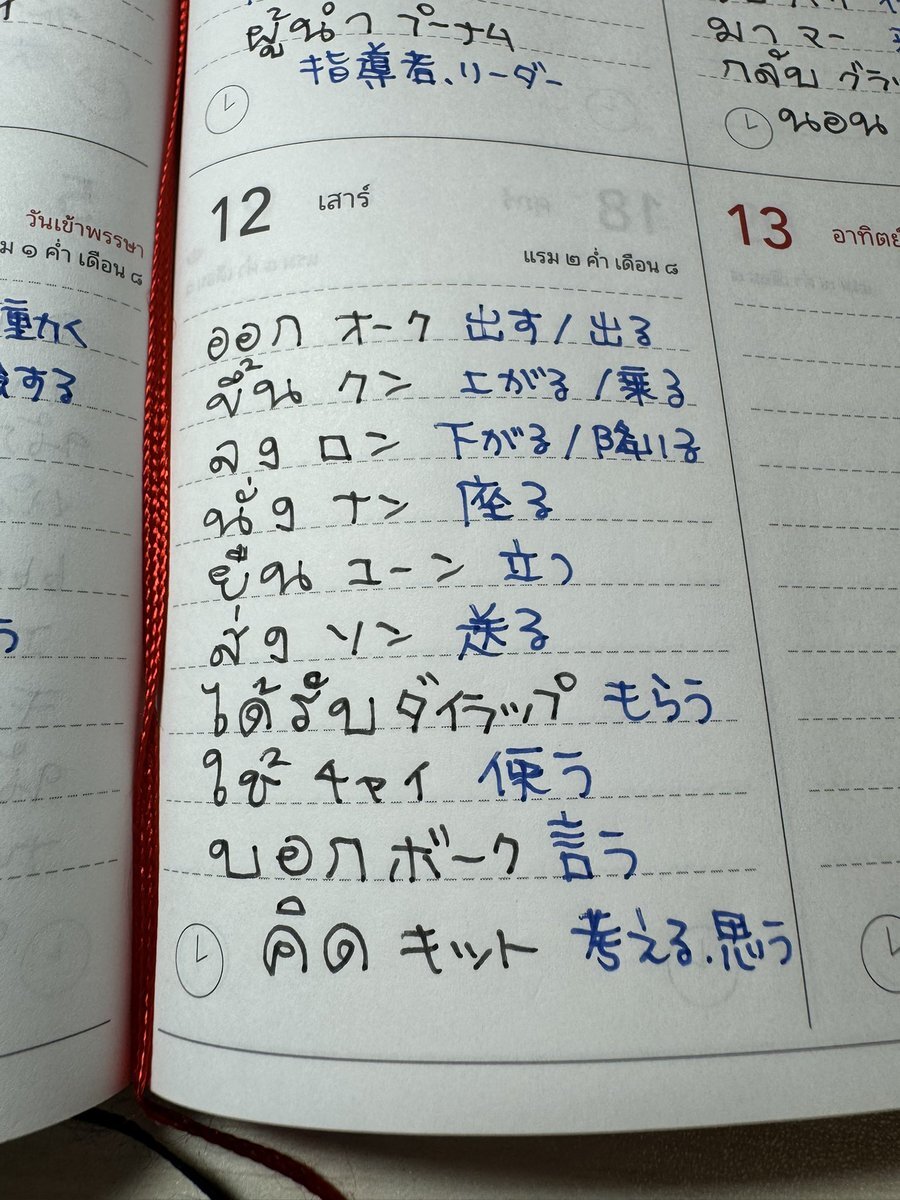 ผู้นำ プーナム
指導者、リーダー
มา マー
กลับ
นอน
วันเข้าพรรษา
ม ๑ ค่ำ เดือน ๘
する
12 เสาร์
แรม ๒ ค่ำ เดือน ๘
ออก オーク 出す/出る
ขึ้น クン 上がる/乗る
ลง ロン 下がる/降りる
นั่ง ナン 座る
ยืน ユーン 立つ
ส่ง ソン 送る
ได้รับ ダイラップ もらう
ใช้ チャイ 使う
บอก ボーク 言う
คิด キット 考える、思う
13 อาทิตย์